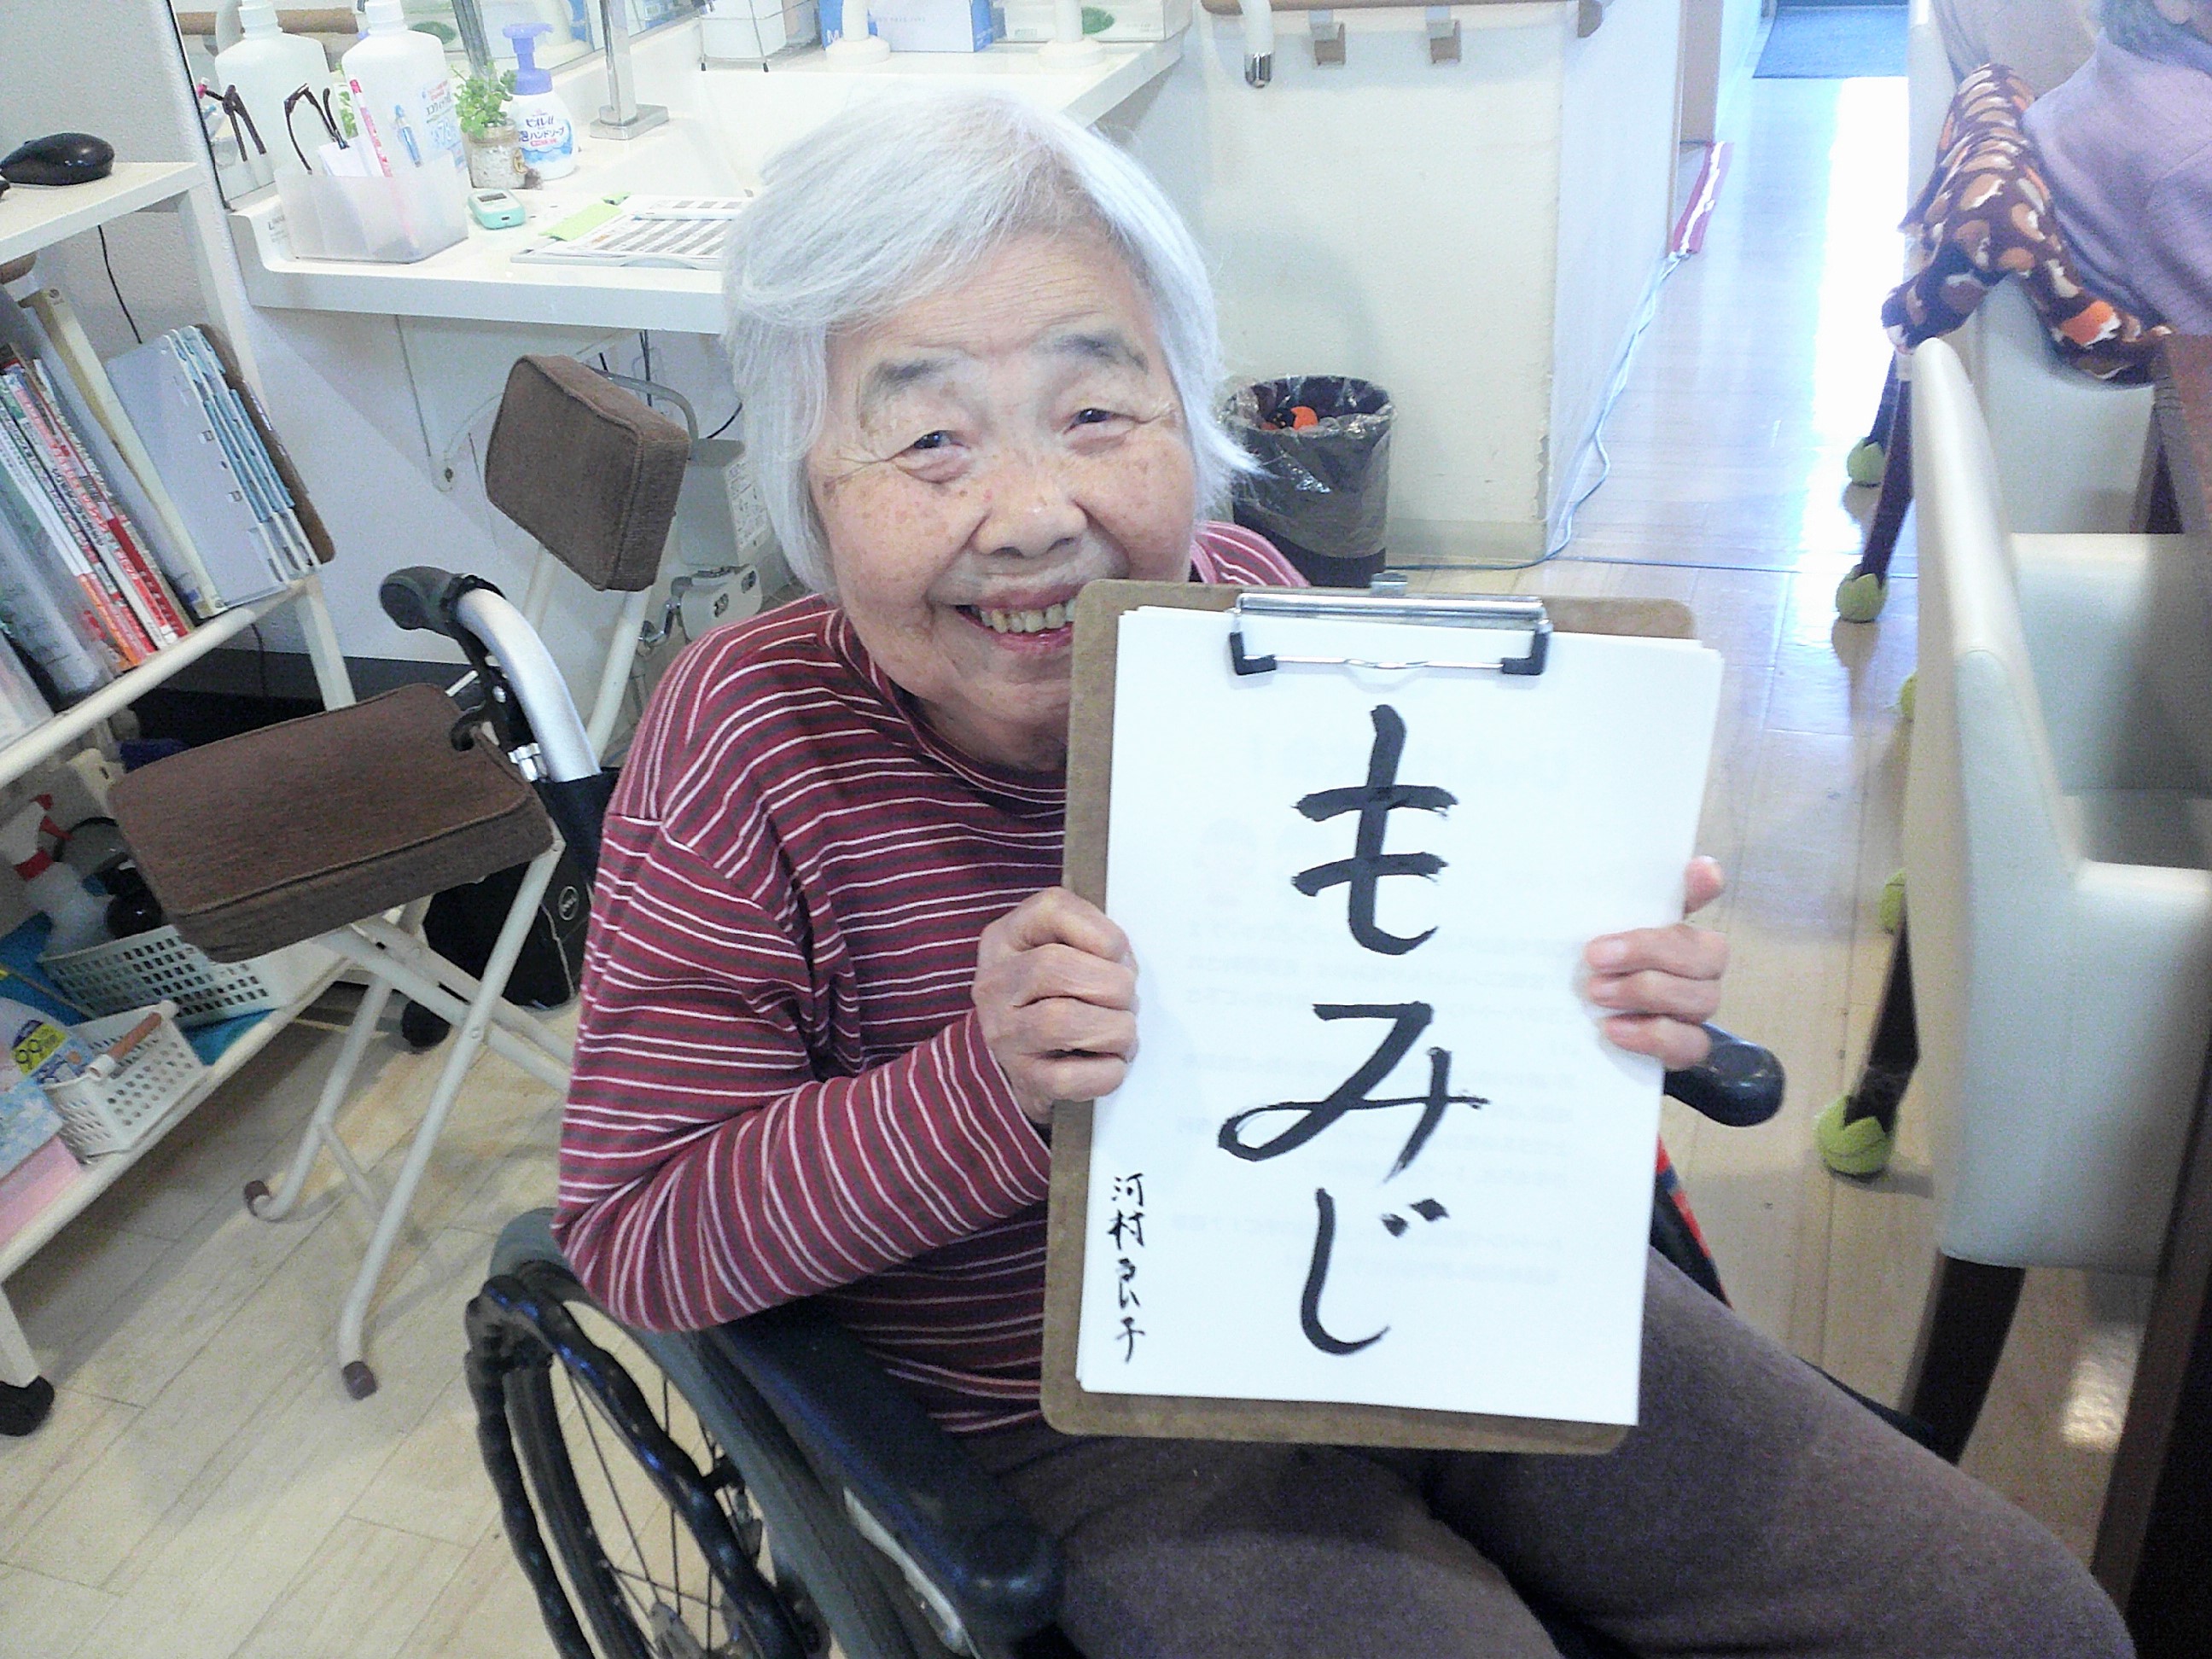 もみじ
河村良子
ビオレu
泡ハンドソープ
DELL
99